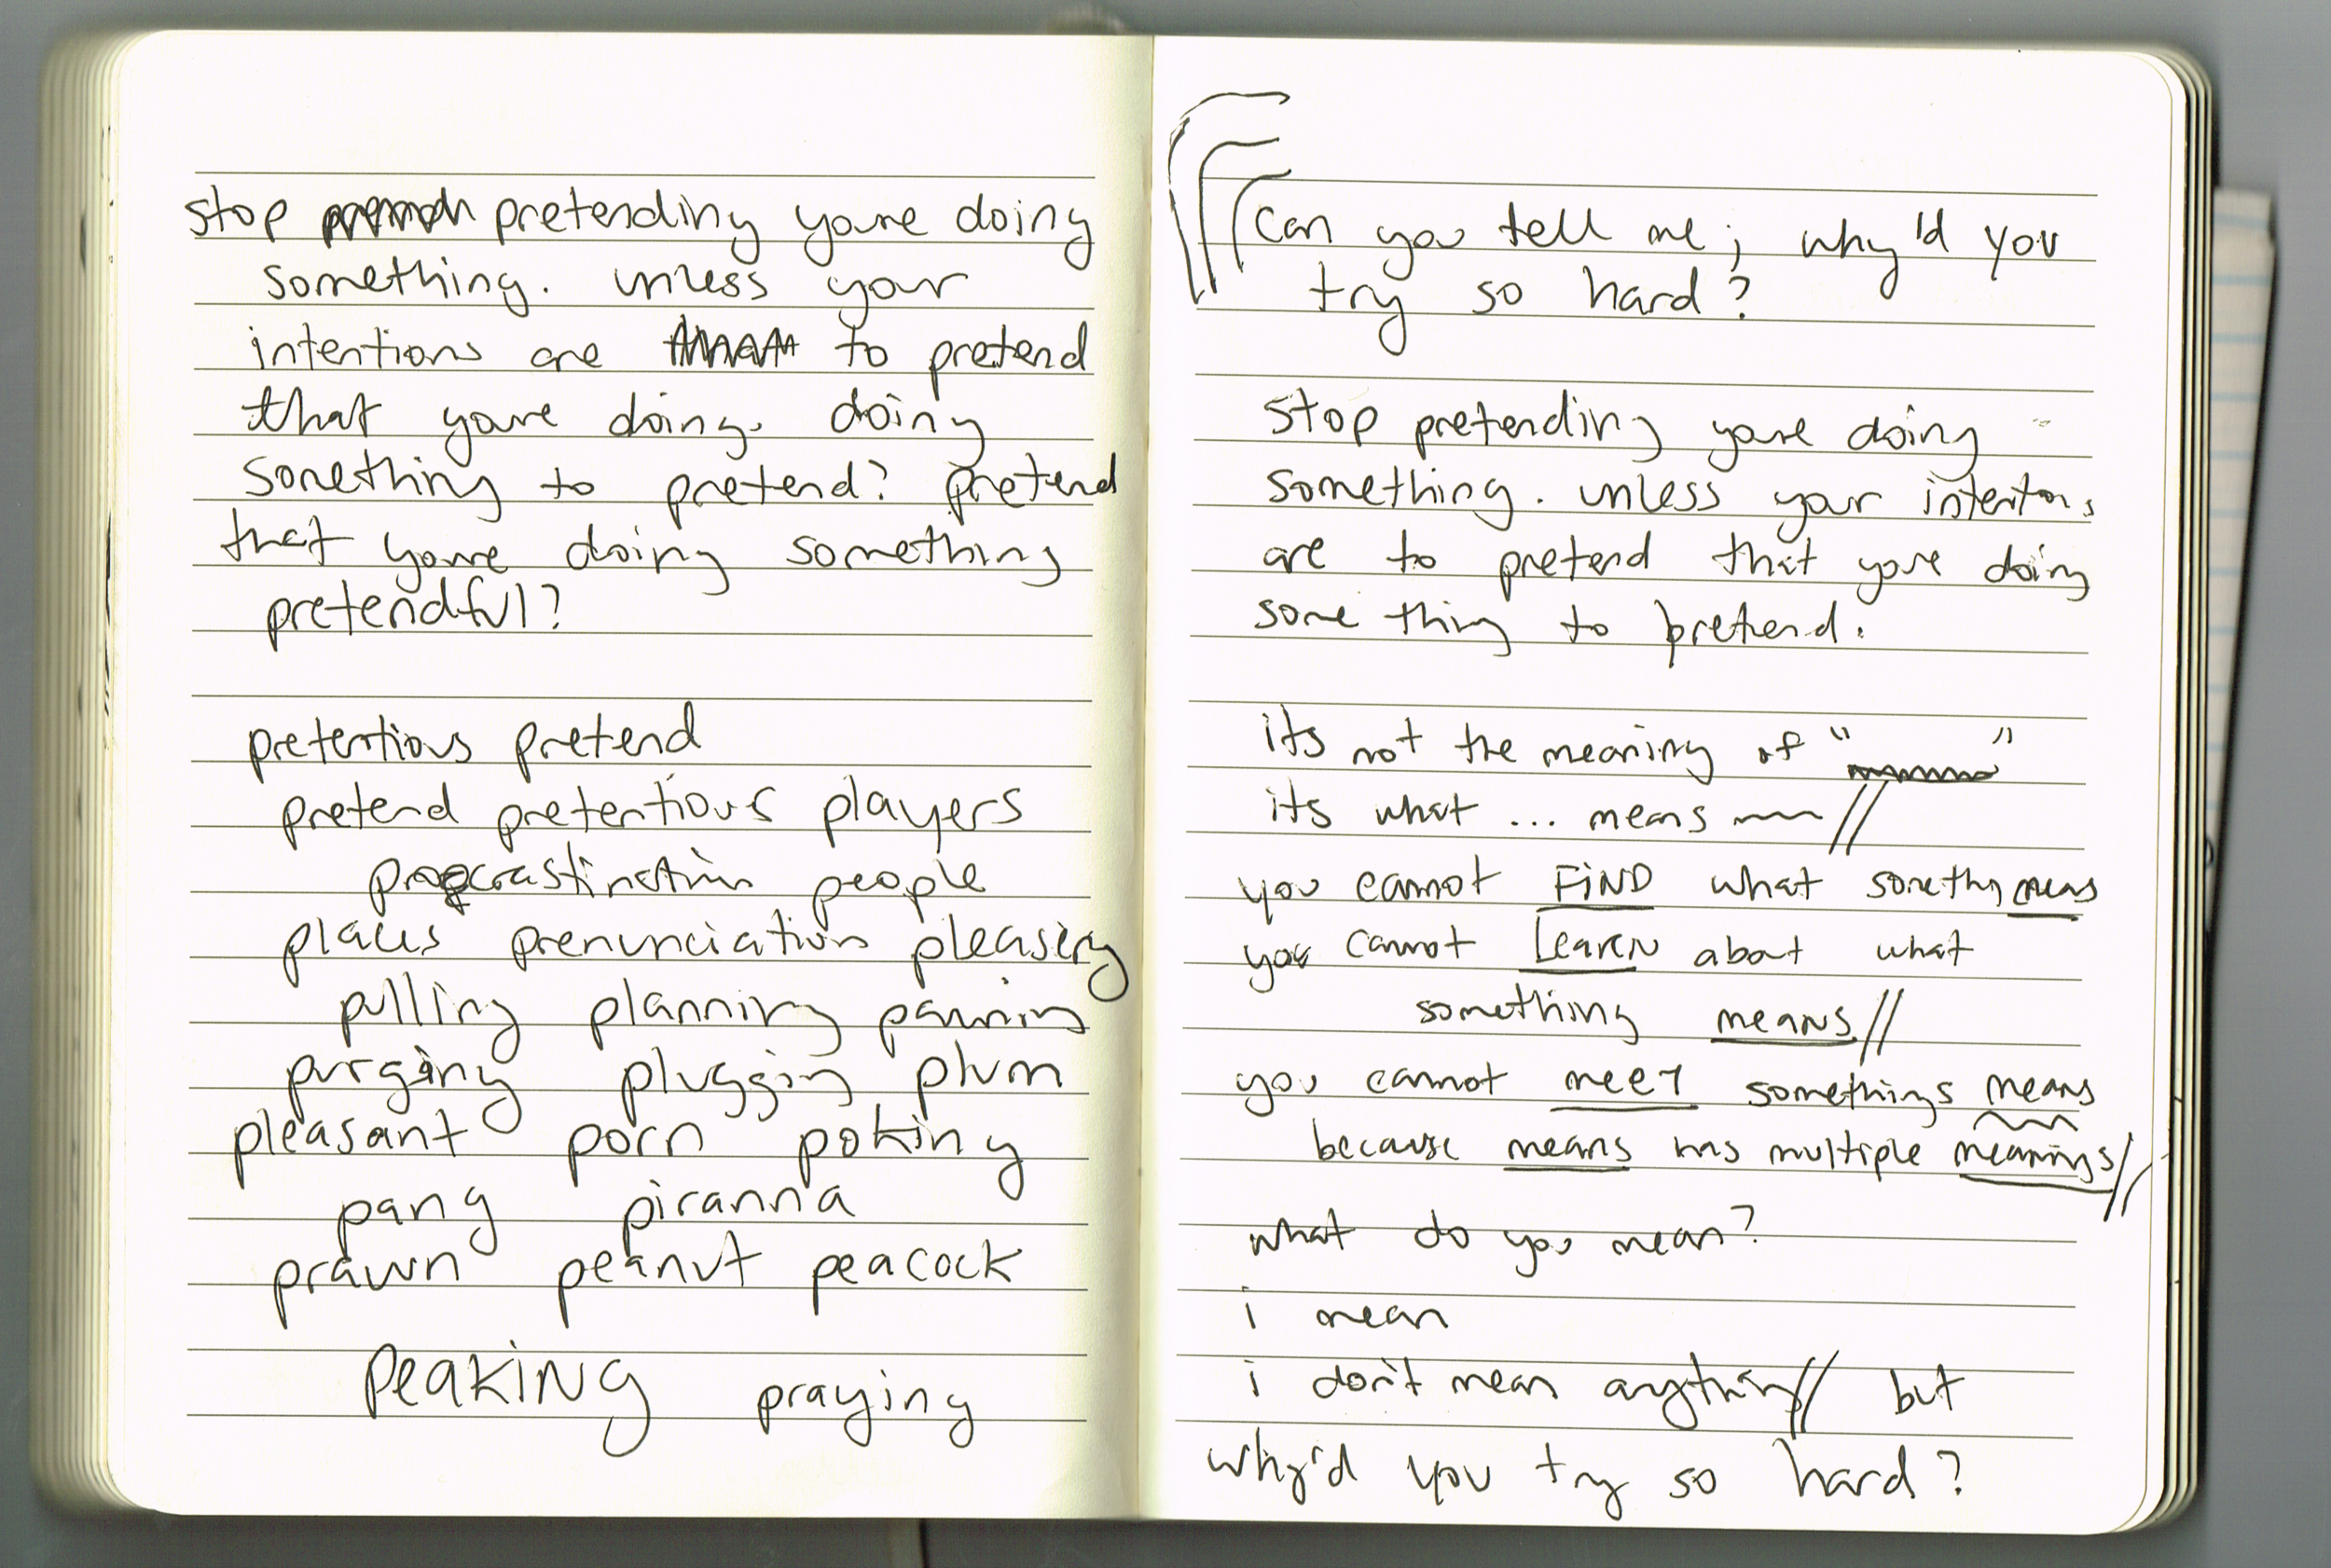 stop pretending youre doing
something. unless your
intentions are to pretend
that youre doing. doing
something to pretend? pretend
that youre doing something
pretendful?
pretentious pretend
pretend pretentious players
procrastination people
places prenunciation pleasing
pulling planning
purging plugging plum
pleasant porn poking
pang piranna
prawn peanut peacock
PEAKING praying
Can you tell me; why'd you
try so hard?
stop pretending youre doing
something. unless your intentions
are to pretend that youre doing
some thing to pretend.
its not the meaning of "        "
its what ... means //
you cannot FIND what something means
you cannot LEARN about what
something means//
you cannot meet somethings means
because means has multiple meanings//
what do you mean?
i mean
i don't mean anything// but
why'd you try so hard?